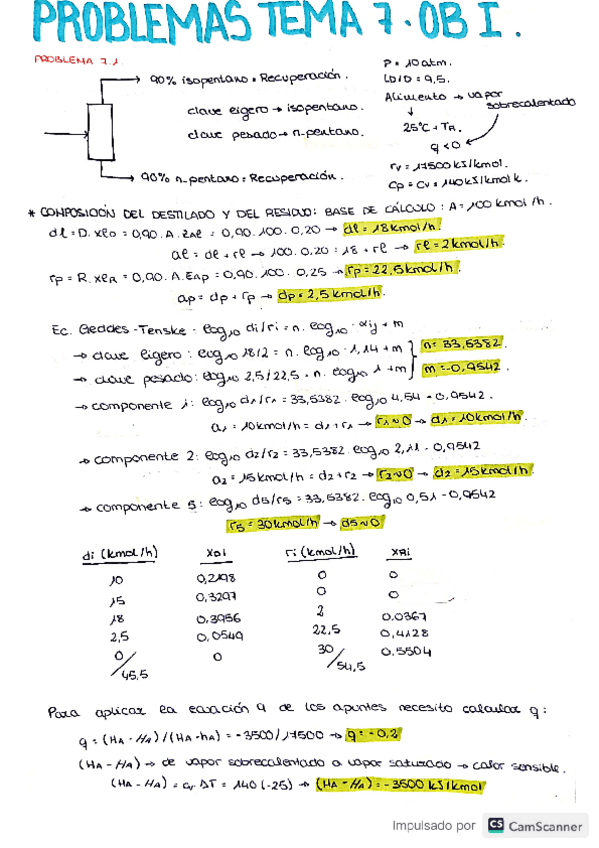 PROBLEMAS TEMA 7. OB I.
PROBLEMA 7.1
90% isopentano = Recuperación.
clave ligero → isopentano.
clave pesado → n-pentano.
90% n-pentano = Recuperación.
P = 10 atm.
LD/D = 9,5.
Alimento → vapor sobrecalentado
25°C + TR.
q < 0
rv = 17500 kJ/kmol.
Cp = Cv = 140 kJ/kmol K.
* COMPOSICIÓN DEL DESTILADO Y DEL RESIDUO: BASE DE CÁLCULO: A = 100 kmol/h.
dl = D. xlD = 0,90. A. zAl = 0,90. 100. 0,20 → dl = 18 kmol/h.
al = dl + rl → 100. 0,20 = 18 + rl → rl = 2 kmol/h.
rp = R. xlR = 0,90. A. zAp = 0,90. 100. 0,25 → rp = 22,5 kmol/h.
ap = dp + rp → dp = 2,5 kmol/h.
Ec. Geddes-Tenske: log10 di/ri = n. log10 αij + m
→ clave ligero: log10 18/2 = n. log10 1,14 + m
n = 33,5382.
→ clave pesado: log10 2,5/22,5 = n. log10 1 + m
m = -0,9542.
→ componente 1: log10 d1/r1 = 33,5382. log10 4,54 - 0,9542.
a1 = 10 kmol/h = d1 + r1 → r1 ≈ 0 → d1 = 10 kmol/h.
→ componente 2: log10 d2/r2 = 33,5382. log10 2,11 - 0,9542
a2 = 15 kmol/h = d2 + r2 → r2 ≈ 0 → d2 = 15 kmol/h.
→ componente 5: log10 d5/r5 = 33,5382. log10 0,51 - 0,9542
r5 = 30 kmol/h → d5 ≈ 0
di (kmol/h) XDi ri (kmol/h) XRi
10 0,2198 0 0
15 0,3297 0 0
18 0,3956 2 0.0367
2,5 0,0549 22,5 0,4128
0 0 30 0.5504
45,5 54,5
Para aplicar la ecuación 9 de los apuntes necesito calcular q:
q = (HA - HA) / (HA - hA) = -3500/17500 → q = -0,2
(HA - HA) → de vapor sobrecalentado a vapor saturado → calor sensible.
(HA - HA) = cv ΔT = 140 (-25) → (HA - HA) = -3500 kJ/kmol
Impulsado por CS CamScanner